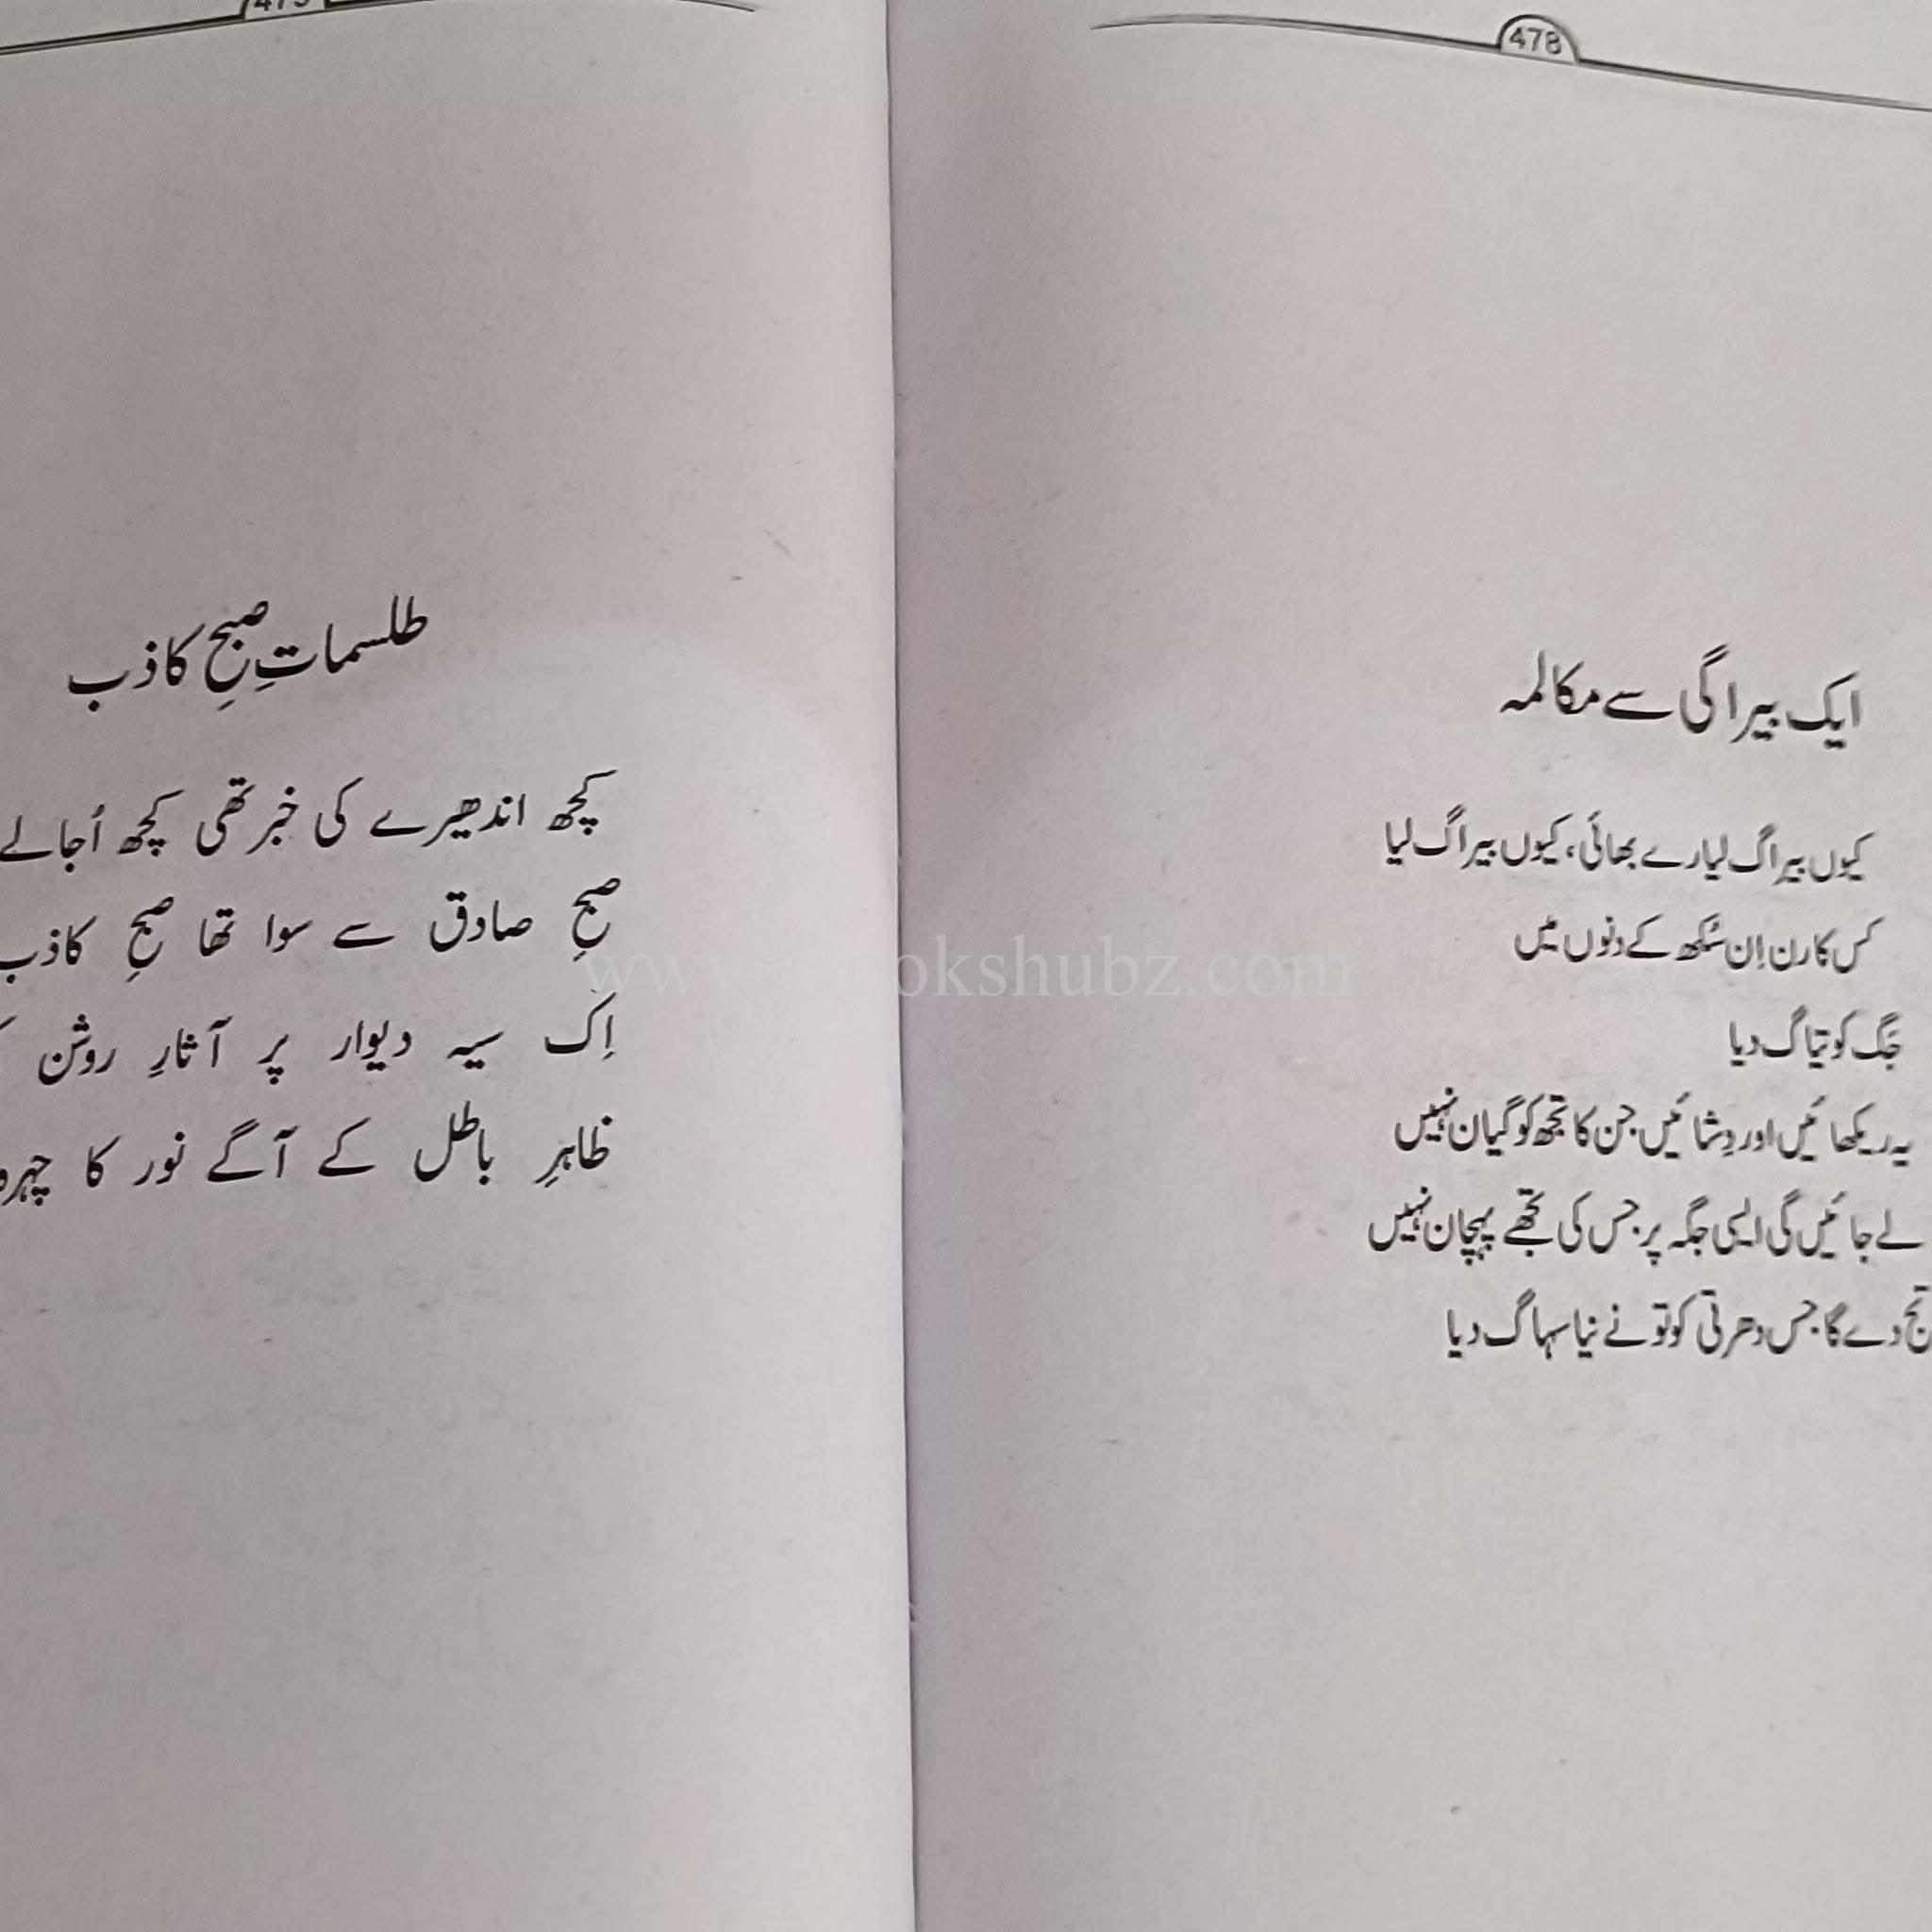 478
ایک بیراگی سے مکالمہ
کیوں بیراگ لیا رے بھائی، کیوں بیراگ لیا
کس کارن اِن سُکھ کے دنوں میں
جَگ کو تیاگ دیا
یہ ریکھائیں اور دِشائیں جن کا تجھ کو گیان نہیں
لے جائیں گی ایسی جگہ پر جس کی تجھے پہچان نہیں
تج دے گا جس دھرتی کو تو نے نیا سہاگ دیا
طلسماتِ صبحِ کاذب
کچھ اندھیرے کی خبر تھی کچھ اُجالے
صبحِ صادق سے سوا تھا صبحِ کاذب
اِک سیہ دیوار پر آثارِ روشن
ظاہرِ باطل کے آگے نور کا چہرہ